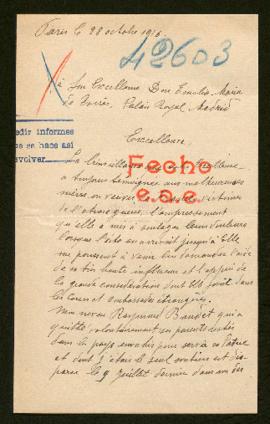 Paris le 28 octobre 1916.
42603
à Son Excellence Don Emilio Maria
de Torres, Palais Royal, Madrid
edir informes
se hace así
volver
Excellence,
La bienveillance que Votre Excellence
a toujours témoignée aux malheureuses
mères ou veuves, victimes
de l'atroce guerre, l'empressement
qu'elle a mis à soulager leurs douleurs
lorsque l'écho en arrivait jusqu'à Elle
me poussent à venir lui demander l'aide
de sa très haute influence et l'appui de
la grande considération dont Elle jouit dans
les Cours et ambassades étrangères.
Mon neveu Raymond Baudet qui a
quitté volontairement ses parents
dans le pays pour servir sa Patrie
et dont j'étais le seul soutien est dis-
paru le 9 Juillet dernier dans un des
Fecho
e.s.e.